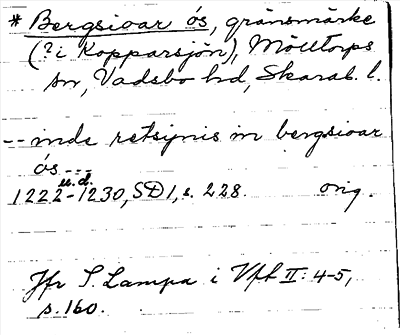 * Bergsioar ós, gränsmärke
(? i Kopparsjön), Mölltorps
sn, Vadsbo hd, Skarab. l.
-- inde retsynis in bergsioar
ós ---
u.d.
1222-1230, SD 1, s. 228. orig.
Jfr S. Lampa i Vft II: 4-5,
s. 160.